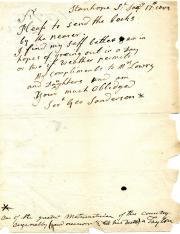 Stanhope St Sepr 17
Sr
Pleas to send the books
by the bearer
I find my self better am in
hopes of going out in a day
or two if wether permits
My compliments to Mrs Lowry
and Daughters and am
Your much Obliged
Sert Geo Sanderson *
* One of the greatest Mathematicians of this Country
Taylor